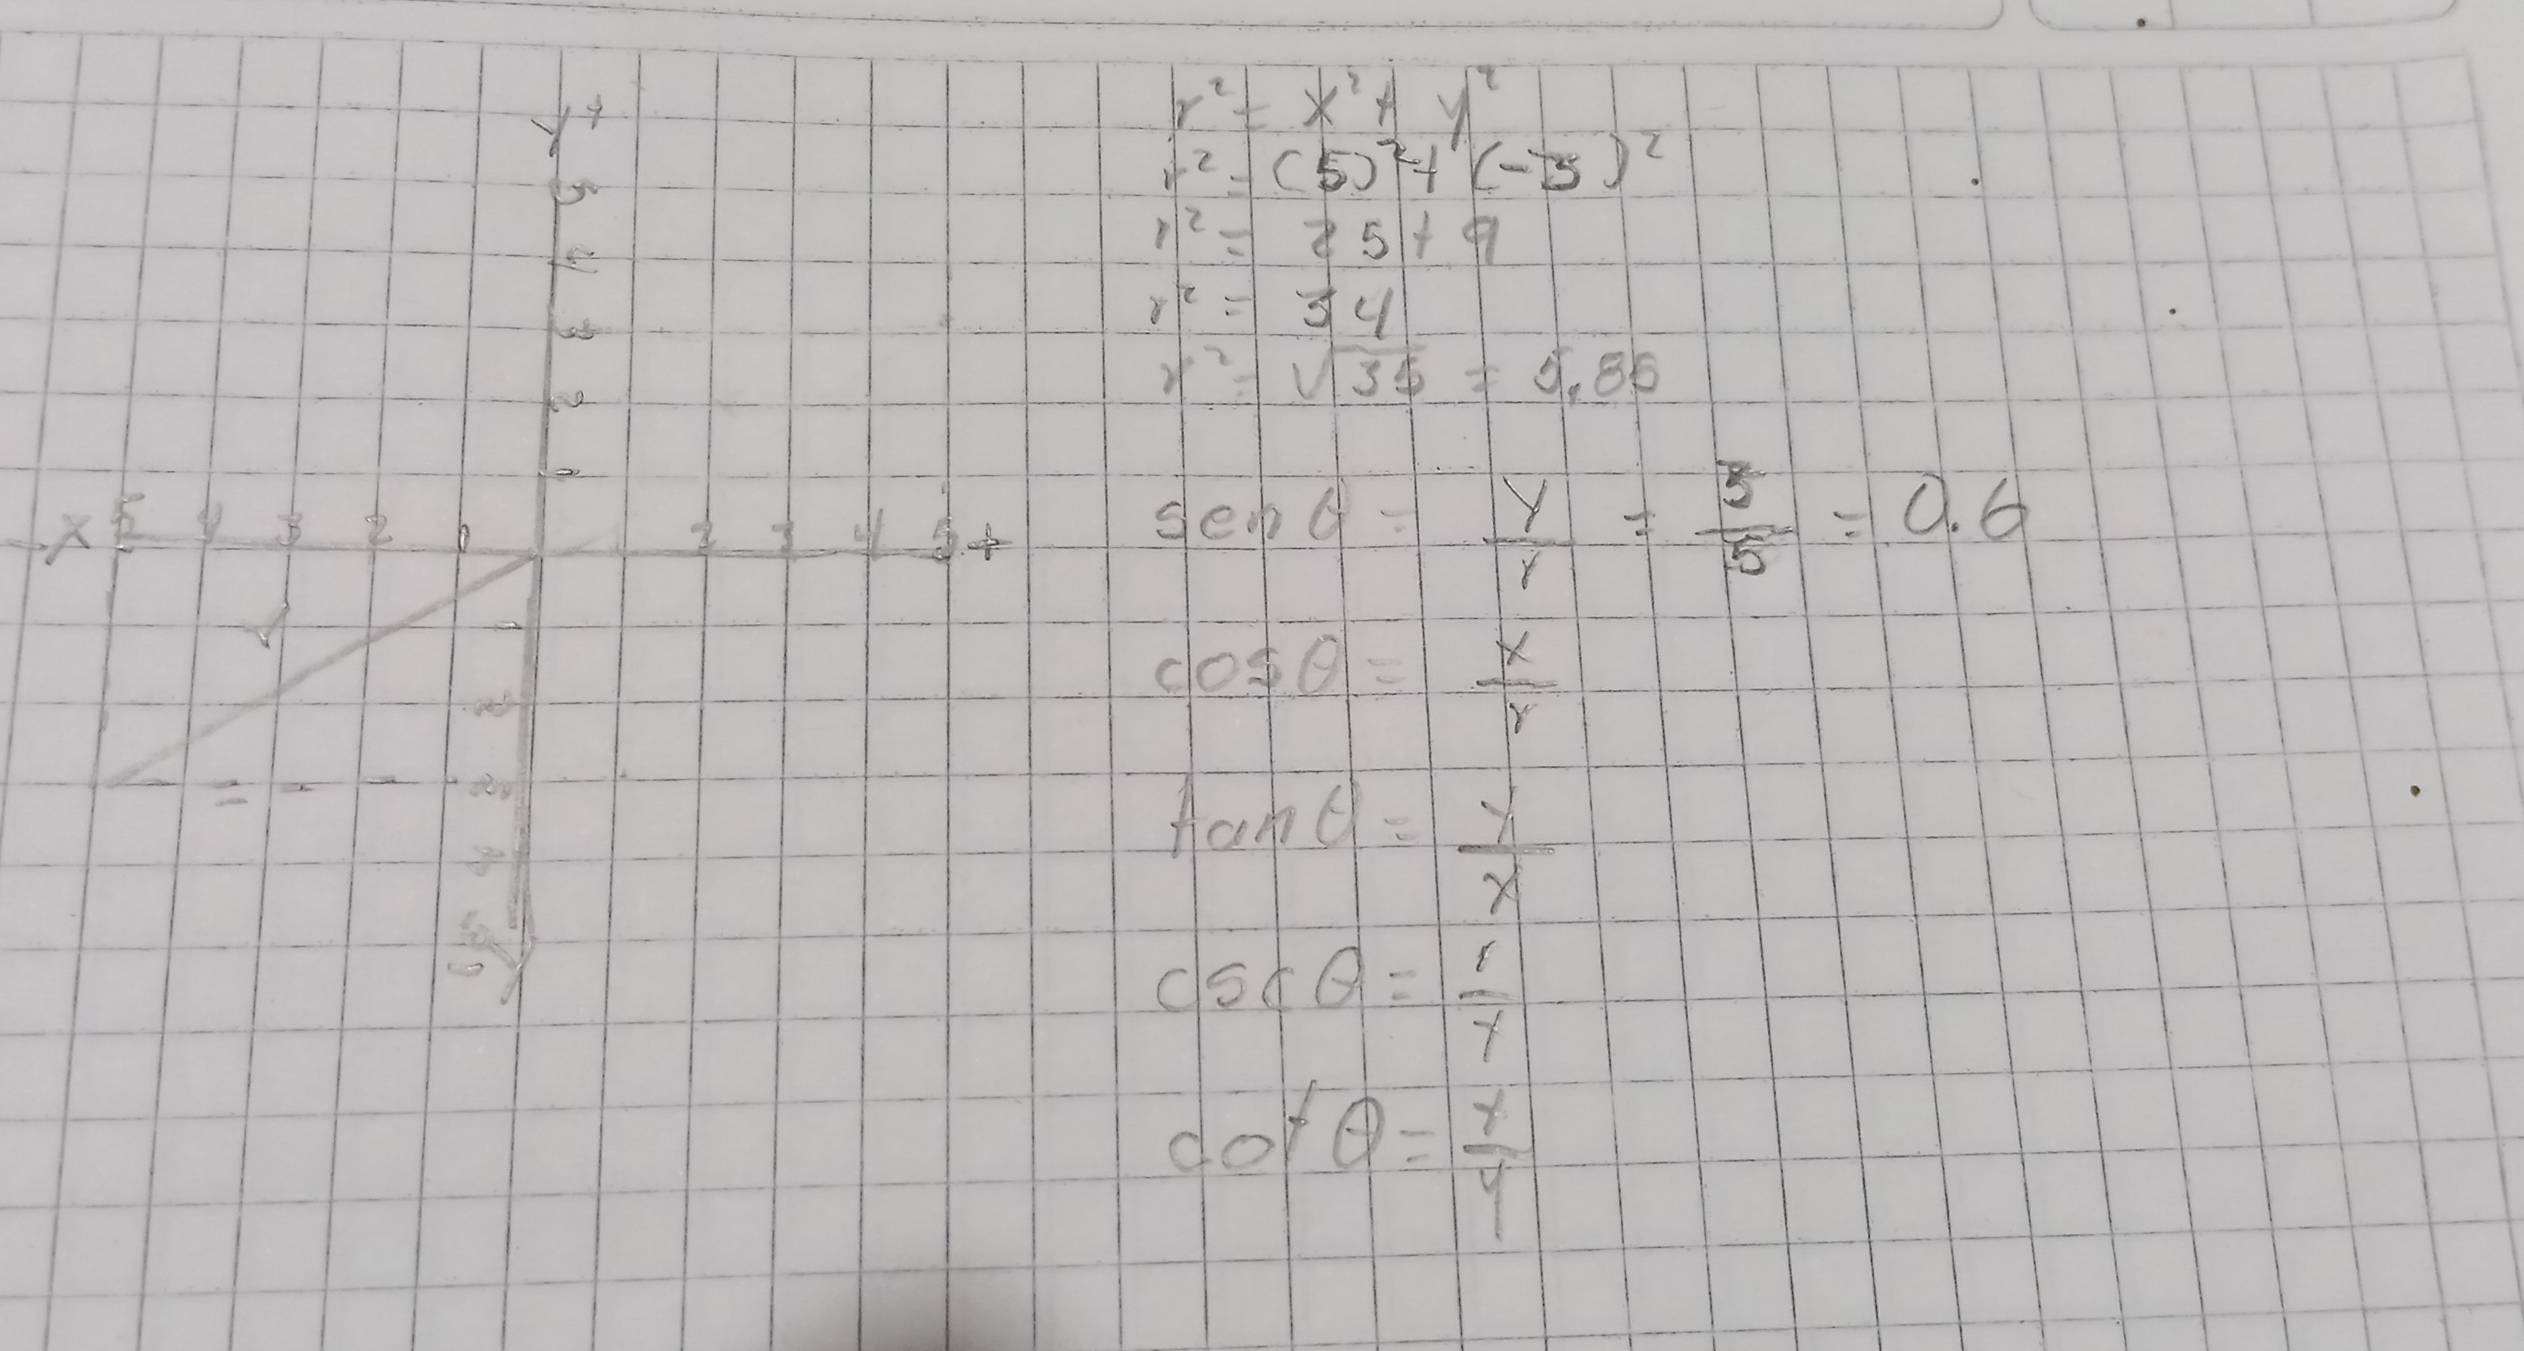 y+
5
4
3
2
1
-x 5 4 3 2 1 2 3 4 5 +
r
1
2
3
4
5
r² = x² + y²
r² = (5)² + (-3)²
r² = 25 + 9
r² = 34
r² = √35 = 5.85
sen θ = y/r = 3/5 = 0.6
cos θ = x/r
tan θ = y/x
csc θ = r/y
cot θ = x/y